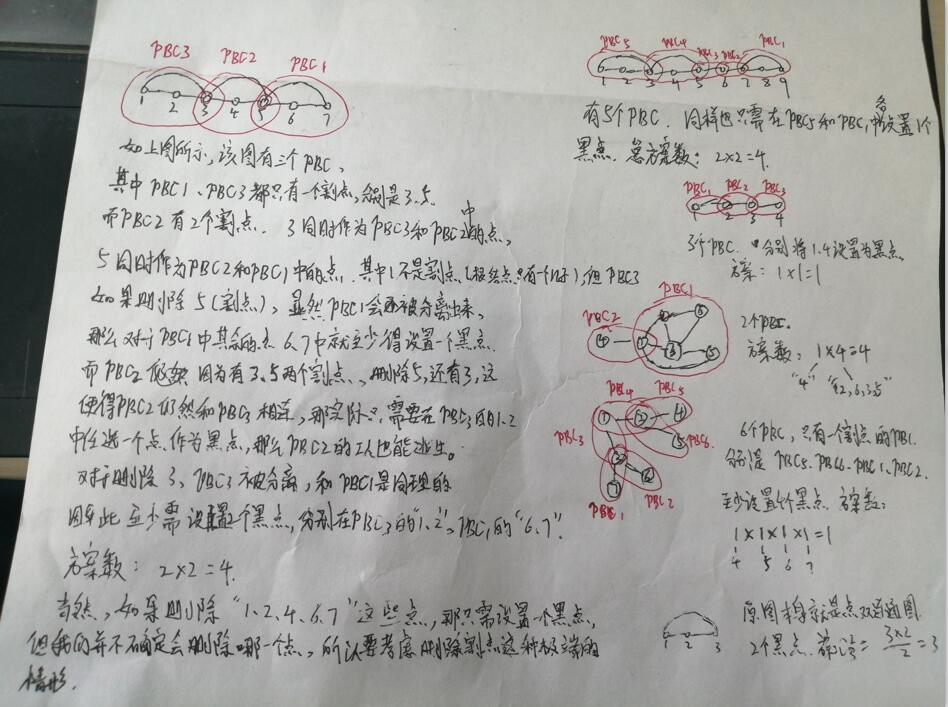 PBC3 PBC2 PBC1
1 2 3 4 5 6 7
如上图所示,该图有三个PBC、
其中PBC1、PBC3都只有一个割点,分别是3.5.
而PBC2有2个割点. 3同时作为PBC3和PBC2中的点,
5同时作为PBC2和PBC1中的点. 其中1不是割点(根结点只有一个时),但PBC3
如果删除5(割点),显然PBC1会被分离出来,
那么对于PBC1中其余的点6.7中就至少得设置一个黑点.
而PBC2 因为有3.5两个割点、删除5,还有3,这
使得PBC2仍然和PBC3相连,那实际只需要在PBC3的1.2
中任选一个点作为黑点,那么PBC2的工人也能逃生。
对于删除3、PBC3被分离,和PBC1是同理的
因此至少需设置2个黑点,分别在PBC3的"1.2",PBC1的"6.7".
方案数: 2×2=4.
当然,如果删除"1.2.4.6.7"这些点,那只需设置一个黑点,
但我们并不确定会删除哪一个点,所以要考虑删除割点这种极端的
情形.
PBC5 PBC4 PBC3 PBC2 PBC1
1 2 3 4 5 6 7 8 9
有5个PBC. 同样也只需在PBC5和PBC1中各设置1个
黑点. 总方案数: 2×2=4.
PBC1 PBC2 PBC3
1 2 3 4
3个PBC. 分别将1.4设置为黑点
方案: 1×1=1
PBC1
PBC2
2个PBC.
方案数: 1×4=4
"4" "2,6,3,5"
PBC4 PBC5
PBC3
PBC6
PBC1 PBC2
6个PBC,只有一个割点的PBC
分别是PBC5、PBC6、PBC1、PBC2.
至少设置4个黑点 方案数:
1×1×1×1=1
4 5 6 7
1 2 3
原图本身就是点双连通图
2个黑点. = 3×2/2 = 3